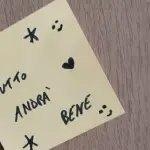 UTTO
ANDRÀ
BENE